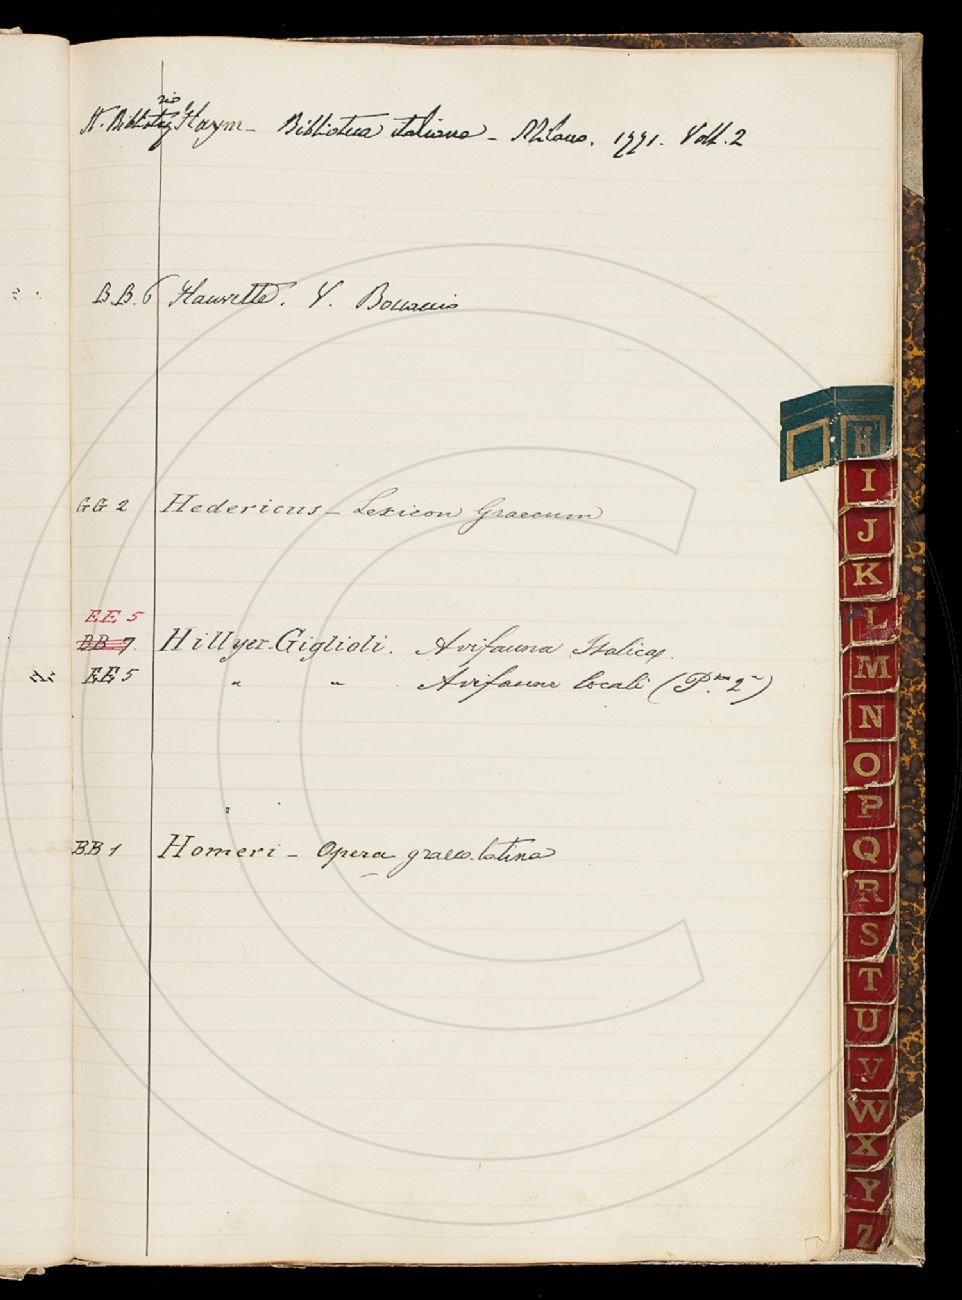 St. Bibliotec. rio Haym - Biblioteca italiana - Milano. 1771. Voll. 2
B.B. 6 Hauvette. V. Boccaccio
GG 2 Hedericus - Lexicon Graecum
EE 5
BB 7 Hillyer-Giglioli. Avifauna Italica.
EE 5 " " Avifaune locali (P.te 2a)
BB 1 Homeri - Opera graeco-latina
H
I
J
K
L
M
N
O
P
Q
R
S
T
U
V
W
X
Y
Z